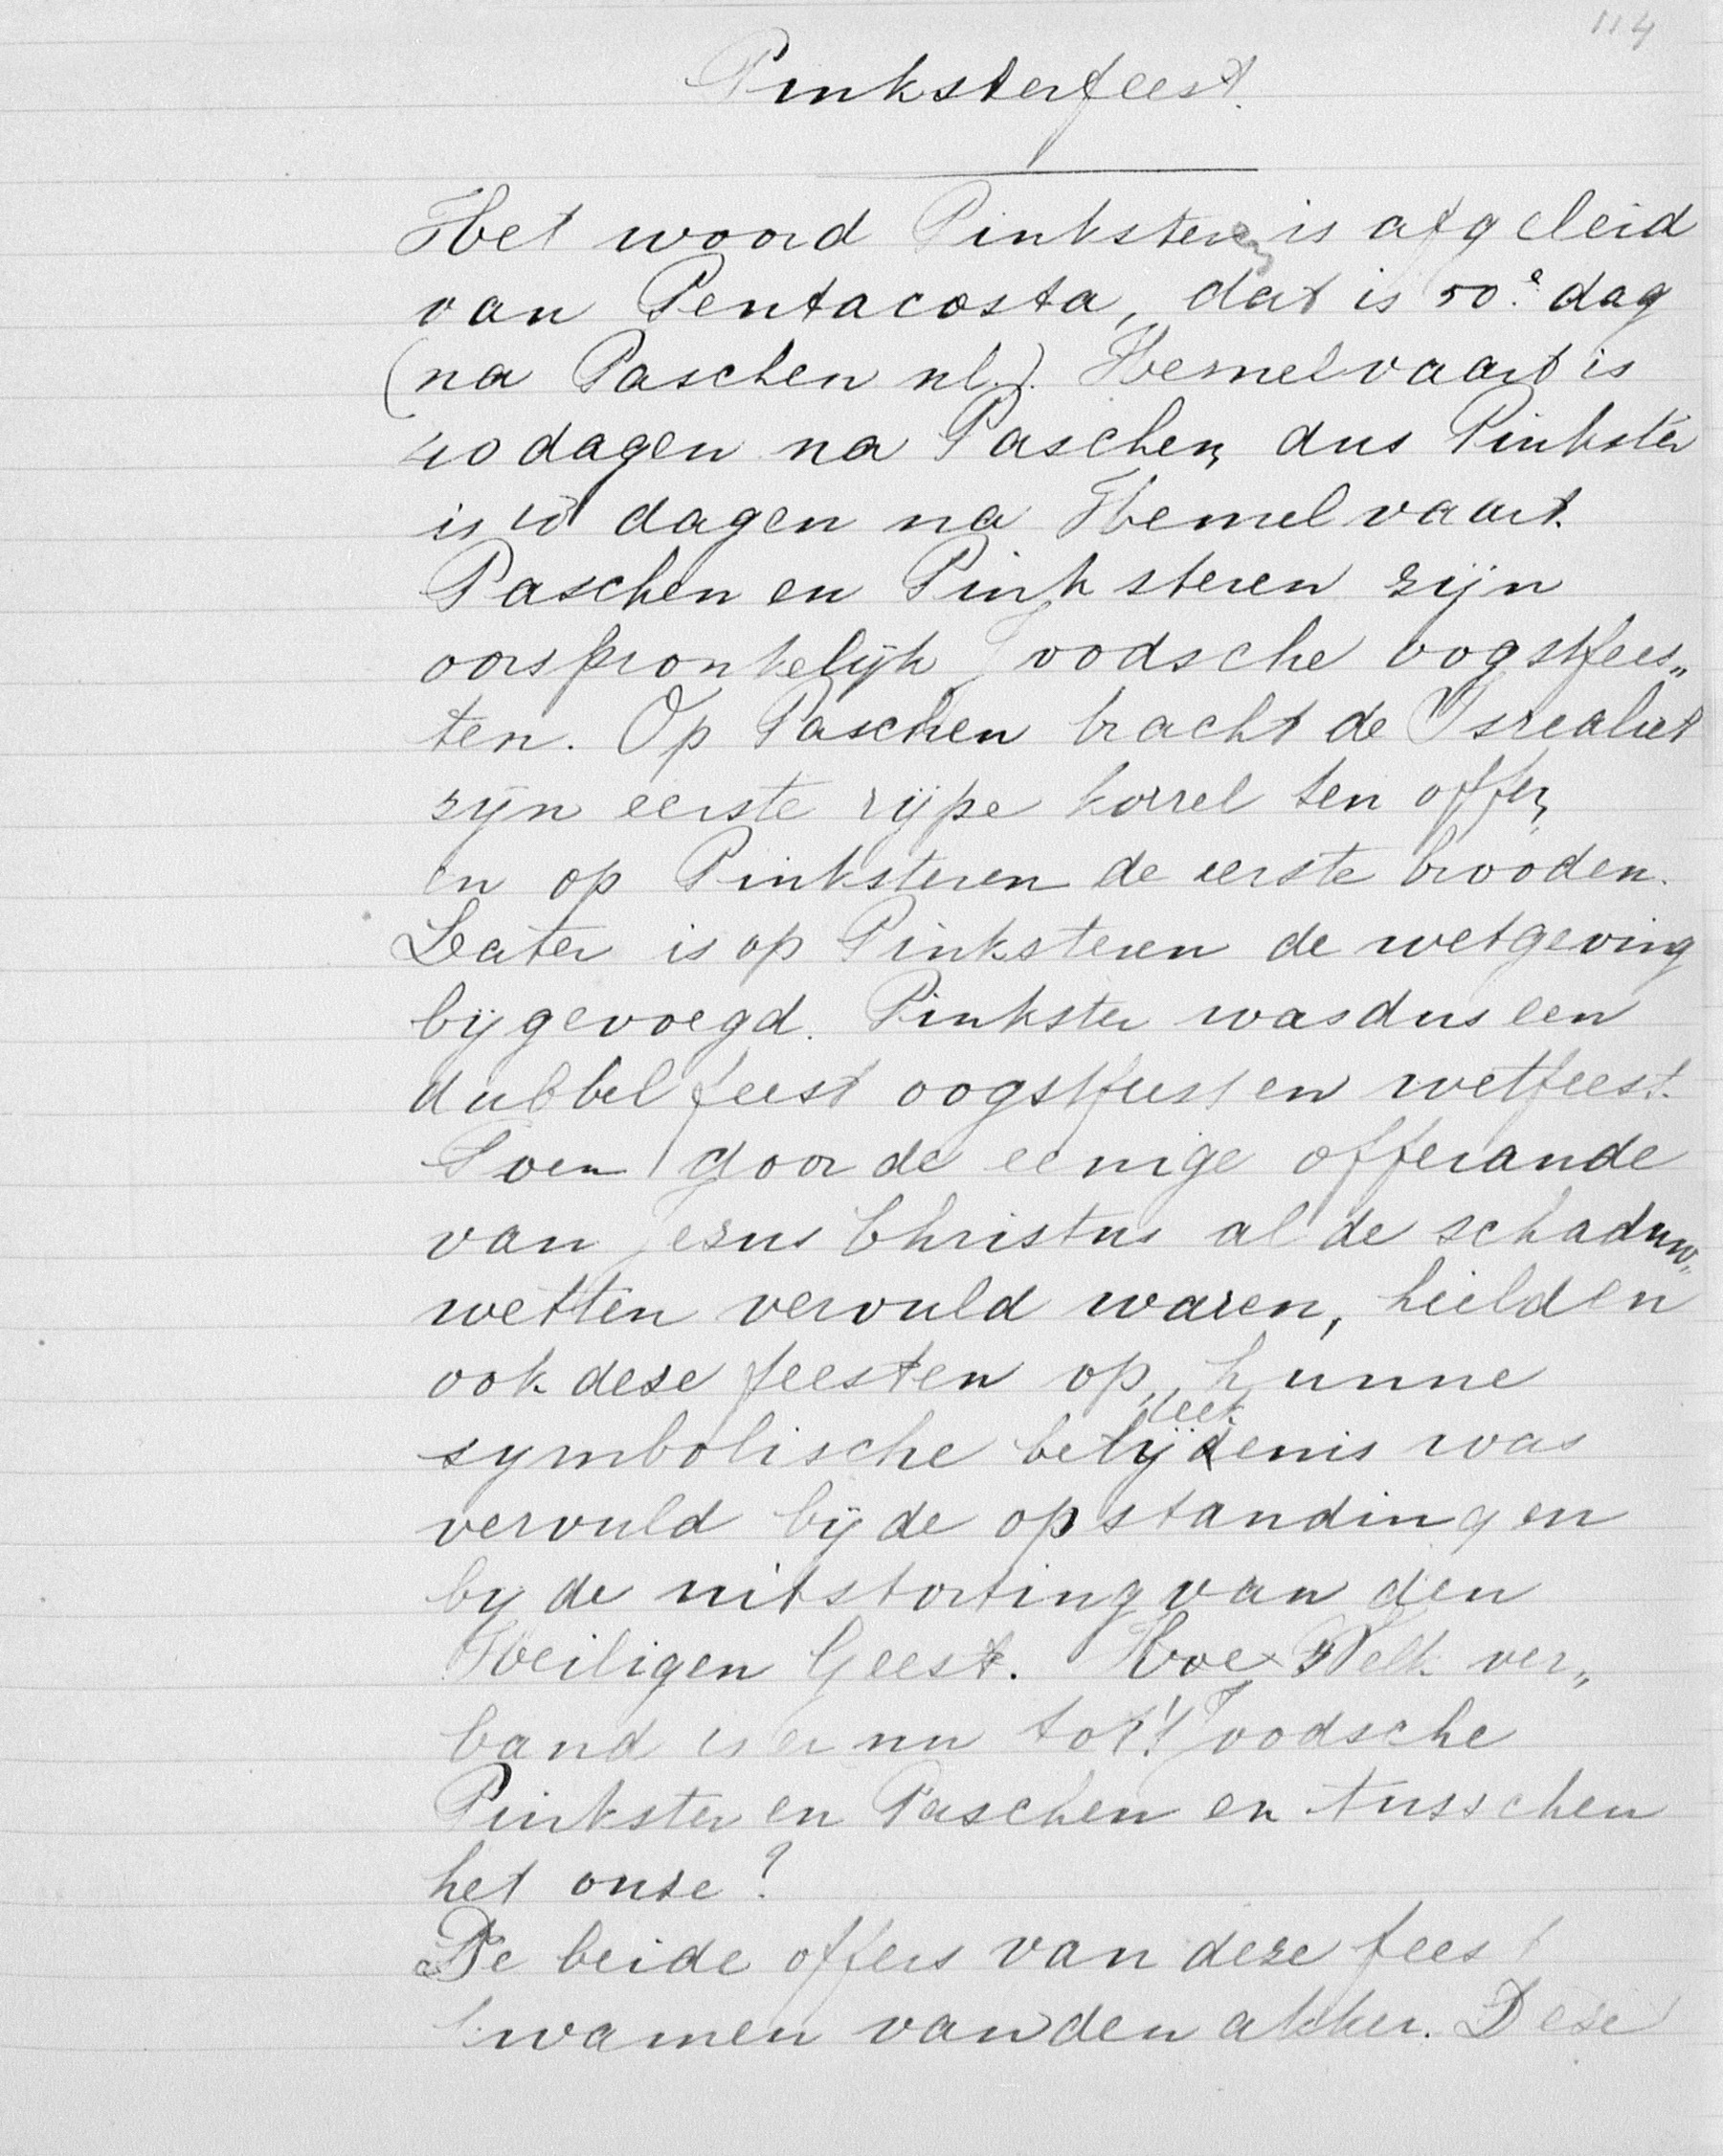 114
Pinksterfeest.
Het woord Pinksteren is afgeleid
van Pentacosta, dat is 50e dag
(na Paschen nl.). Hemelvaart is
40 dagen na Paschen, dus Pinkster
is 10 dagen na Hemelvaart.
Paschen en Pinksteren zijn
oorspronkelijk Joodsche oogstfees„
ten. Op Paschen bracht de Isrealiet
zijn eerste rijpe korrel ten offer,
en op Pinksteren de eerste brooden.
Later is op Pinksteren de wetgeving
bijgevoegd. Pinkster was dus een
dubbel feest oogstfeest en wetfeest.
Toen door de eenige offerande
van Jezus Christus al de schaduw„
wetten vervuld waren, hielden
ook deze feesten op, hunne
teek
symbolische belijdenis was
vervuld bij de opstanding en
by de uitstorting van den
Heiligen Geest. Hoe Welk ver„
band is er nu tot 't Joodsche
Pinkster en Paschen en tusschen
het onze?
De beide offers van deze feest
kwamen van den akker. Deze